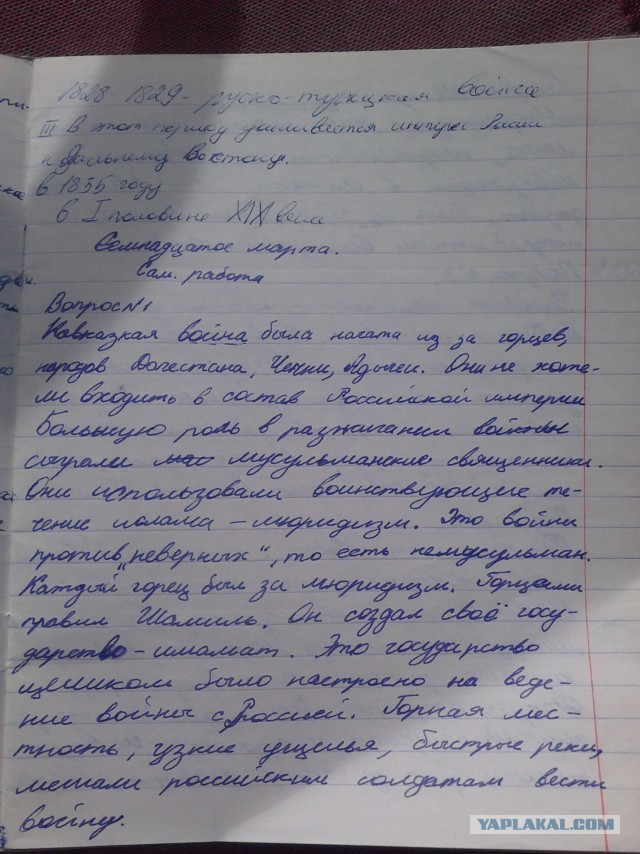 1828-1829 - руско-турецкая война
III В этот период усиливается интерес Росии
к Дальнему Востоку.
в 1855 году
в I половине XIX века
Семнадцатое марта.
Сам. работа
Вопрос №1
Кавказкая война была начата из за горцев,
народов Догестана, Чечни, Адыгеи. Они не хоте-
ли входить в состав Российской империи
большую роль в разжигании войны
сыграли мусульманские священники.
Они использовали воинствующие те-
чение ислама - мюридизм. Это войны
против "неверных", то есть немусульман.
Каждый горец был за мюридизм. Горцами
правил Шамиль. Он создал своё госу-
дарство - имамат. Это государство
целиком было настроено на веде-
ние войны с Россией. Горная мес-
тность, узкие ущелья, быстрые реки,
мешали российским солдатам вести
войну.
YAPLAKAL.COM